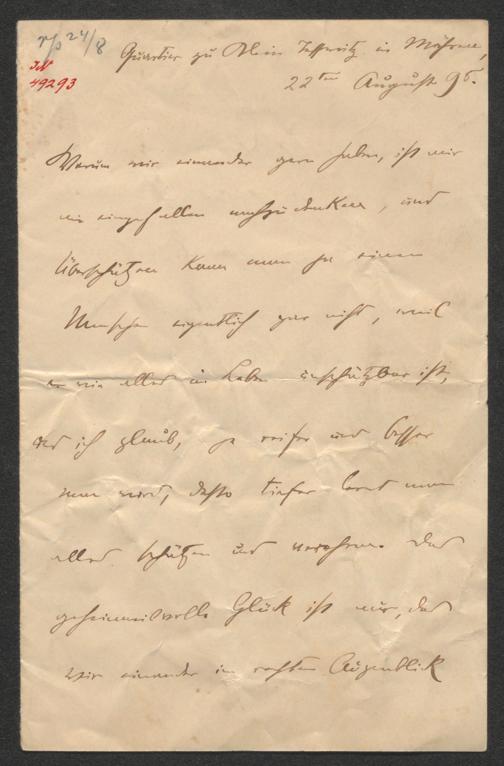 r/p 24/8
IN
49293
Quartier zu Klein Tesswitz in Mähren,
22ten August 95.
Warum wir einander gern haben, ist mir
nie eingefallen nachzudenken, und
überschätzen kann man ja einen
Menschen eigentlich gar nicht, weil
er wie alles im Leben unschätzbar ist,
und ich glaub, je reifer und besser
man wird, desto tiefer lernt man
alles schätzen und verehren. Das
geheimnisvolle Glück ist nur, daß
wir einander im rechten Augenblick